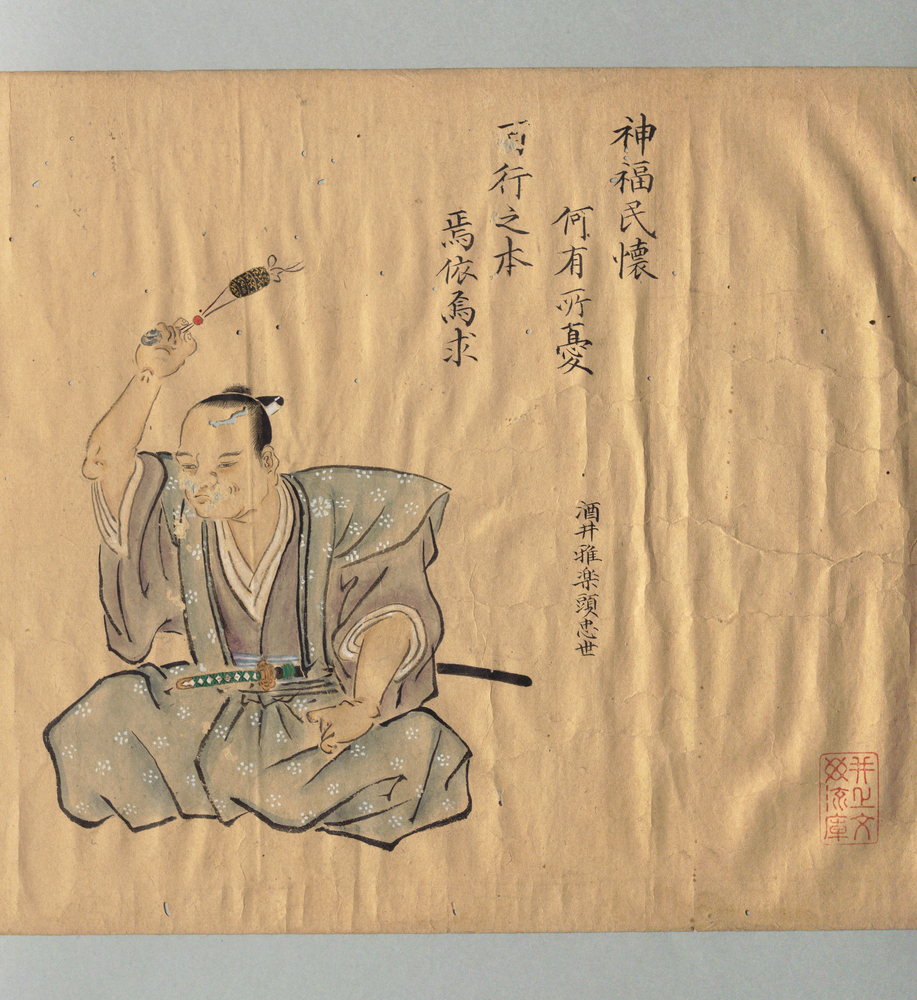 神福民懐
何有所憂
百行之本
焉依焉求
酒井雅楽頭忠世